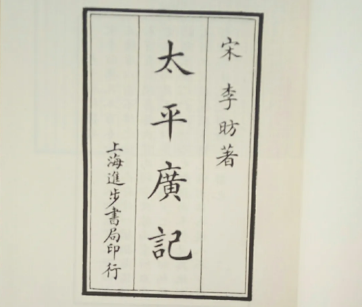 宋 李昉著
太平廣記
上海進步書局印行